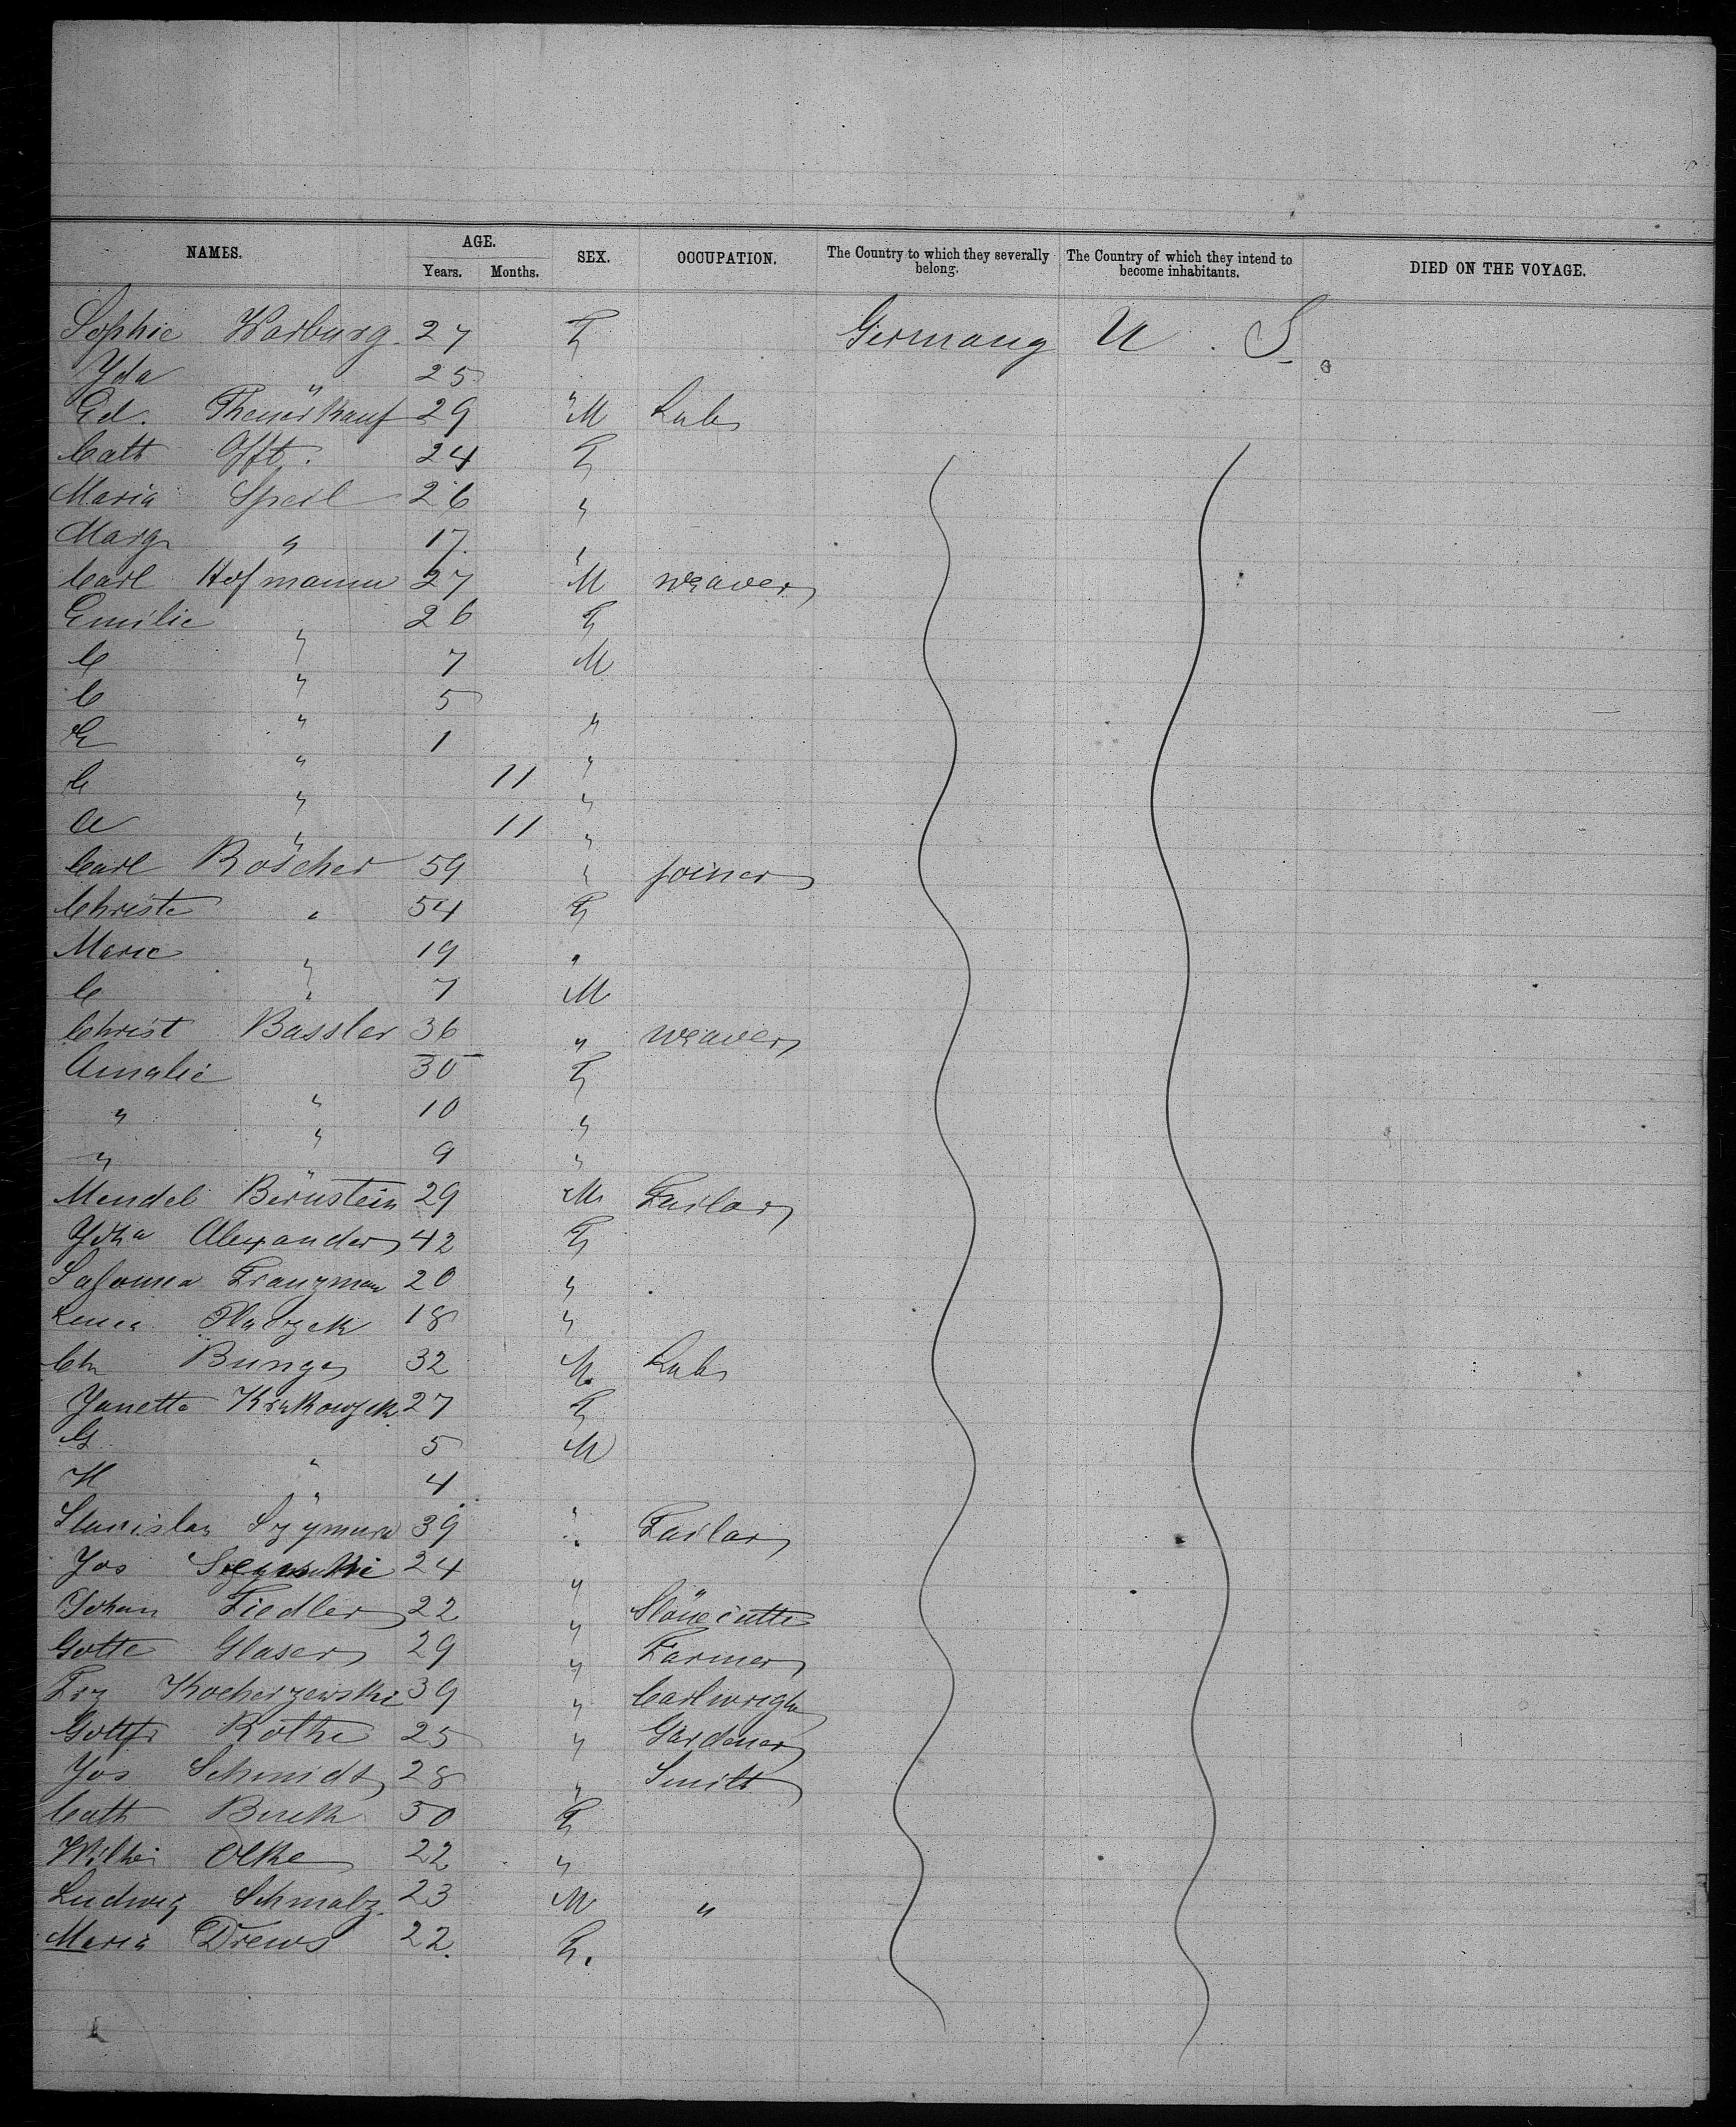 NAMES. AGE. Years. Months. SEX. OCCUPATION. The Country to which they severally belong. The Country of which they intend to become inhabitants. DIED ON THE VOYAGE.
Sophie Warburg 27 F Germany U. S.
Yda " 25 "
Ed. Theuerkauf 29 M Lab
Cath Offt. 24 F
Maria Speil 26 "
Marg " 17 "
Carl Hofmann 27 M weaver
Emilie " 26 F
C " 7 M
C " 5 "
E " 1 "
C " 11 "
A " 11 "
Carl Roscher 59 " joiner
Christe " 54 F
Marie " 19 "
C " 7 M
Christ Bassler 36 " weaver
Amalie " 30 F
" " 10 "
" " 9 "
Mendel Bernstein 29 M Tailor
Alexander 42 F
Franzman 20 "
18 "
Ch Bunge 32 M. Lab
Janette 27 F
G " 5 M
H " 4 "
Stanislaw Szymura 39 " Tailor
Jos 24 "
Johan Fiedler 22 " Stonecutte
Gotte Glaser 29 " Farmer
Frz Kocherzewski 39 " Cartwright
Gottfr Rothe 25 " Gardener
Jos Schmidt 28 " Smith
Cath 50 F
Olke 22 "
Ludwig Schmalz 23 M "
Maria Drews 22. F.